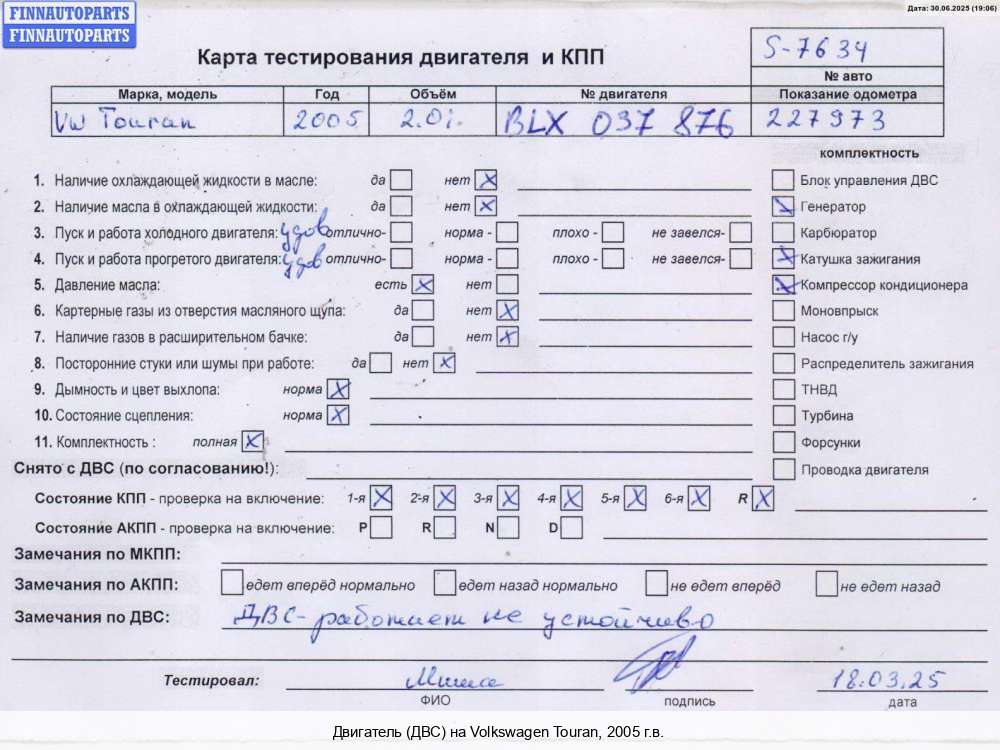 FINNAUTOPARTS
FINNAUTOPARTS
Дата: 30.06.2025 (19:06)
Карта тестирования двигателя и КПП
S-7634
№ авто
Марка, модель Год Объём № двигателя Показание одометра
VW Touran 2005 2.0i. BLX 037 876 227973
комплектность
1. Наличие охлаждающей жидкости в масле: да нет X
Блок управления ДВС
2. Наличие масла в охлаждающей жидкости: да нет X
Генератор
3. Пуск и работа холодного двигателя: удов отлично- норма - плохо - не завелся-
Карбюратор
4. Пуск и работа прогретого двигателя: удов отлично- норма - плохо - не завелся-
Катушка зажигания
5. Давление масла: есть X нет
Компрессор кондиционера
6. Картерные газы из отверстия масляного щупа: да нет X
Моновпрыск
7. Наличие газов в расширительном бачке: да нет X
Насос г/у
8. Посторонние стуки или шумы при работе: да нет X
Распределитель зажигания
9. Дымность и цвет выхлопа: норма X
ТНВД
10. Состояние сцепления: норма X
Турбина
11. Комплектность : полная X
Форсунки
Снято с ДВС (по согласованию!):
Проводка двигателя
Состояние КПП - проверка на включение: 1-я X 2-я X 3-я X 4-я X 5-я X 6-я X R X
Состояние АКПП - проверка на включение: P R N D
Замечания по МКПП:
Замечания по АКПП: едет вперёд нормально едет назад нормально не едет вперёд не едет назад
Замечания по ДВС: ДВС - работает не устойчиво
Тестировал: Миша 18.03.25
ФИО подпись дата
Двигатель (ДВС) на Volkswagen Touran, 2005 г.в.